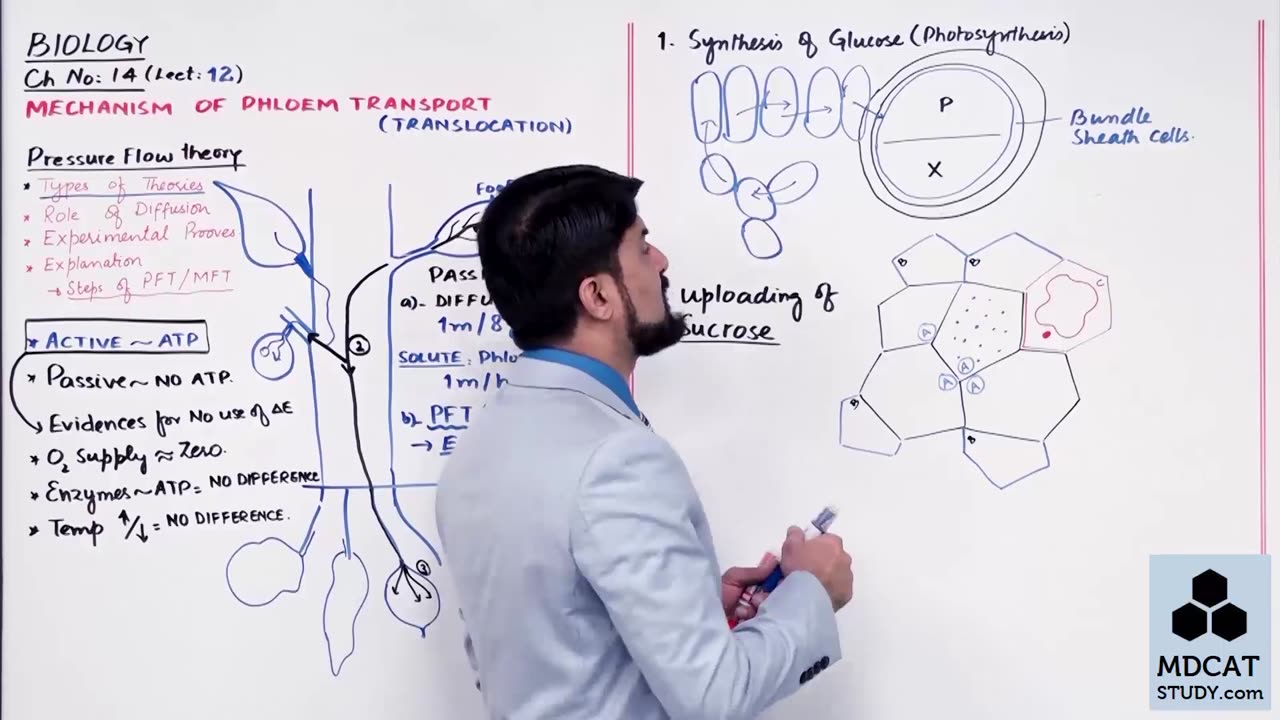 BIOLOGY
Ch No: 14 (Lect: 12)
MECHANISM OF PHLOEM TRANSPORT
(TRANSLOCATION)
Pressure Flow theory
* Types of Theories
* Role of Diffusion
* Experimental Prooves
* Explanation
→ Steps of PFT/MFT
* ACTIVE ~ ATP
* Passive ~ NO ATP.
Evidences for No use of ΔE
* O₂ Supply ≈ Zero.
* Enzymes ~ ATP = NO DIFFERENCE
* Temp ↑/↓ = NO DIFFERENCE.
②
③
a)-
1m/8
SOLUTE:
1m/h
b)- PFT
→ E
1. Synthesis of Glucose (Photosynthesis)
P
X
Bundle
Sheath Cells.
uploading of
Sucrose
B
B
C
A
A
A
A
B
B
MDCAT
STUDY.com